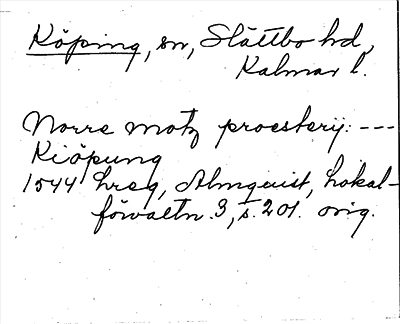 Köping, sn, Slättbo hd,
Kalmar l.
Norre motz proesterij: ---
Kiöpung
1544 hreg, Almquist, Lokal-
förvaltn. 3, s. 201. orig.